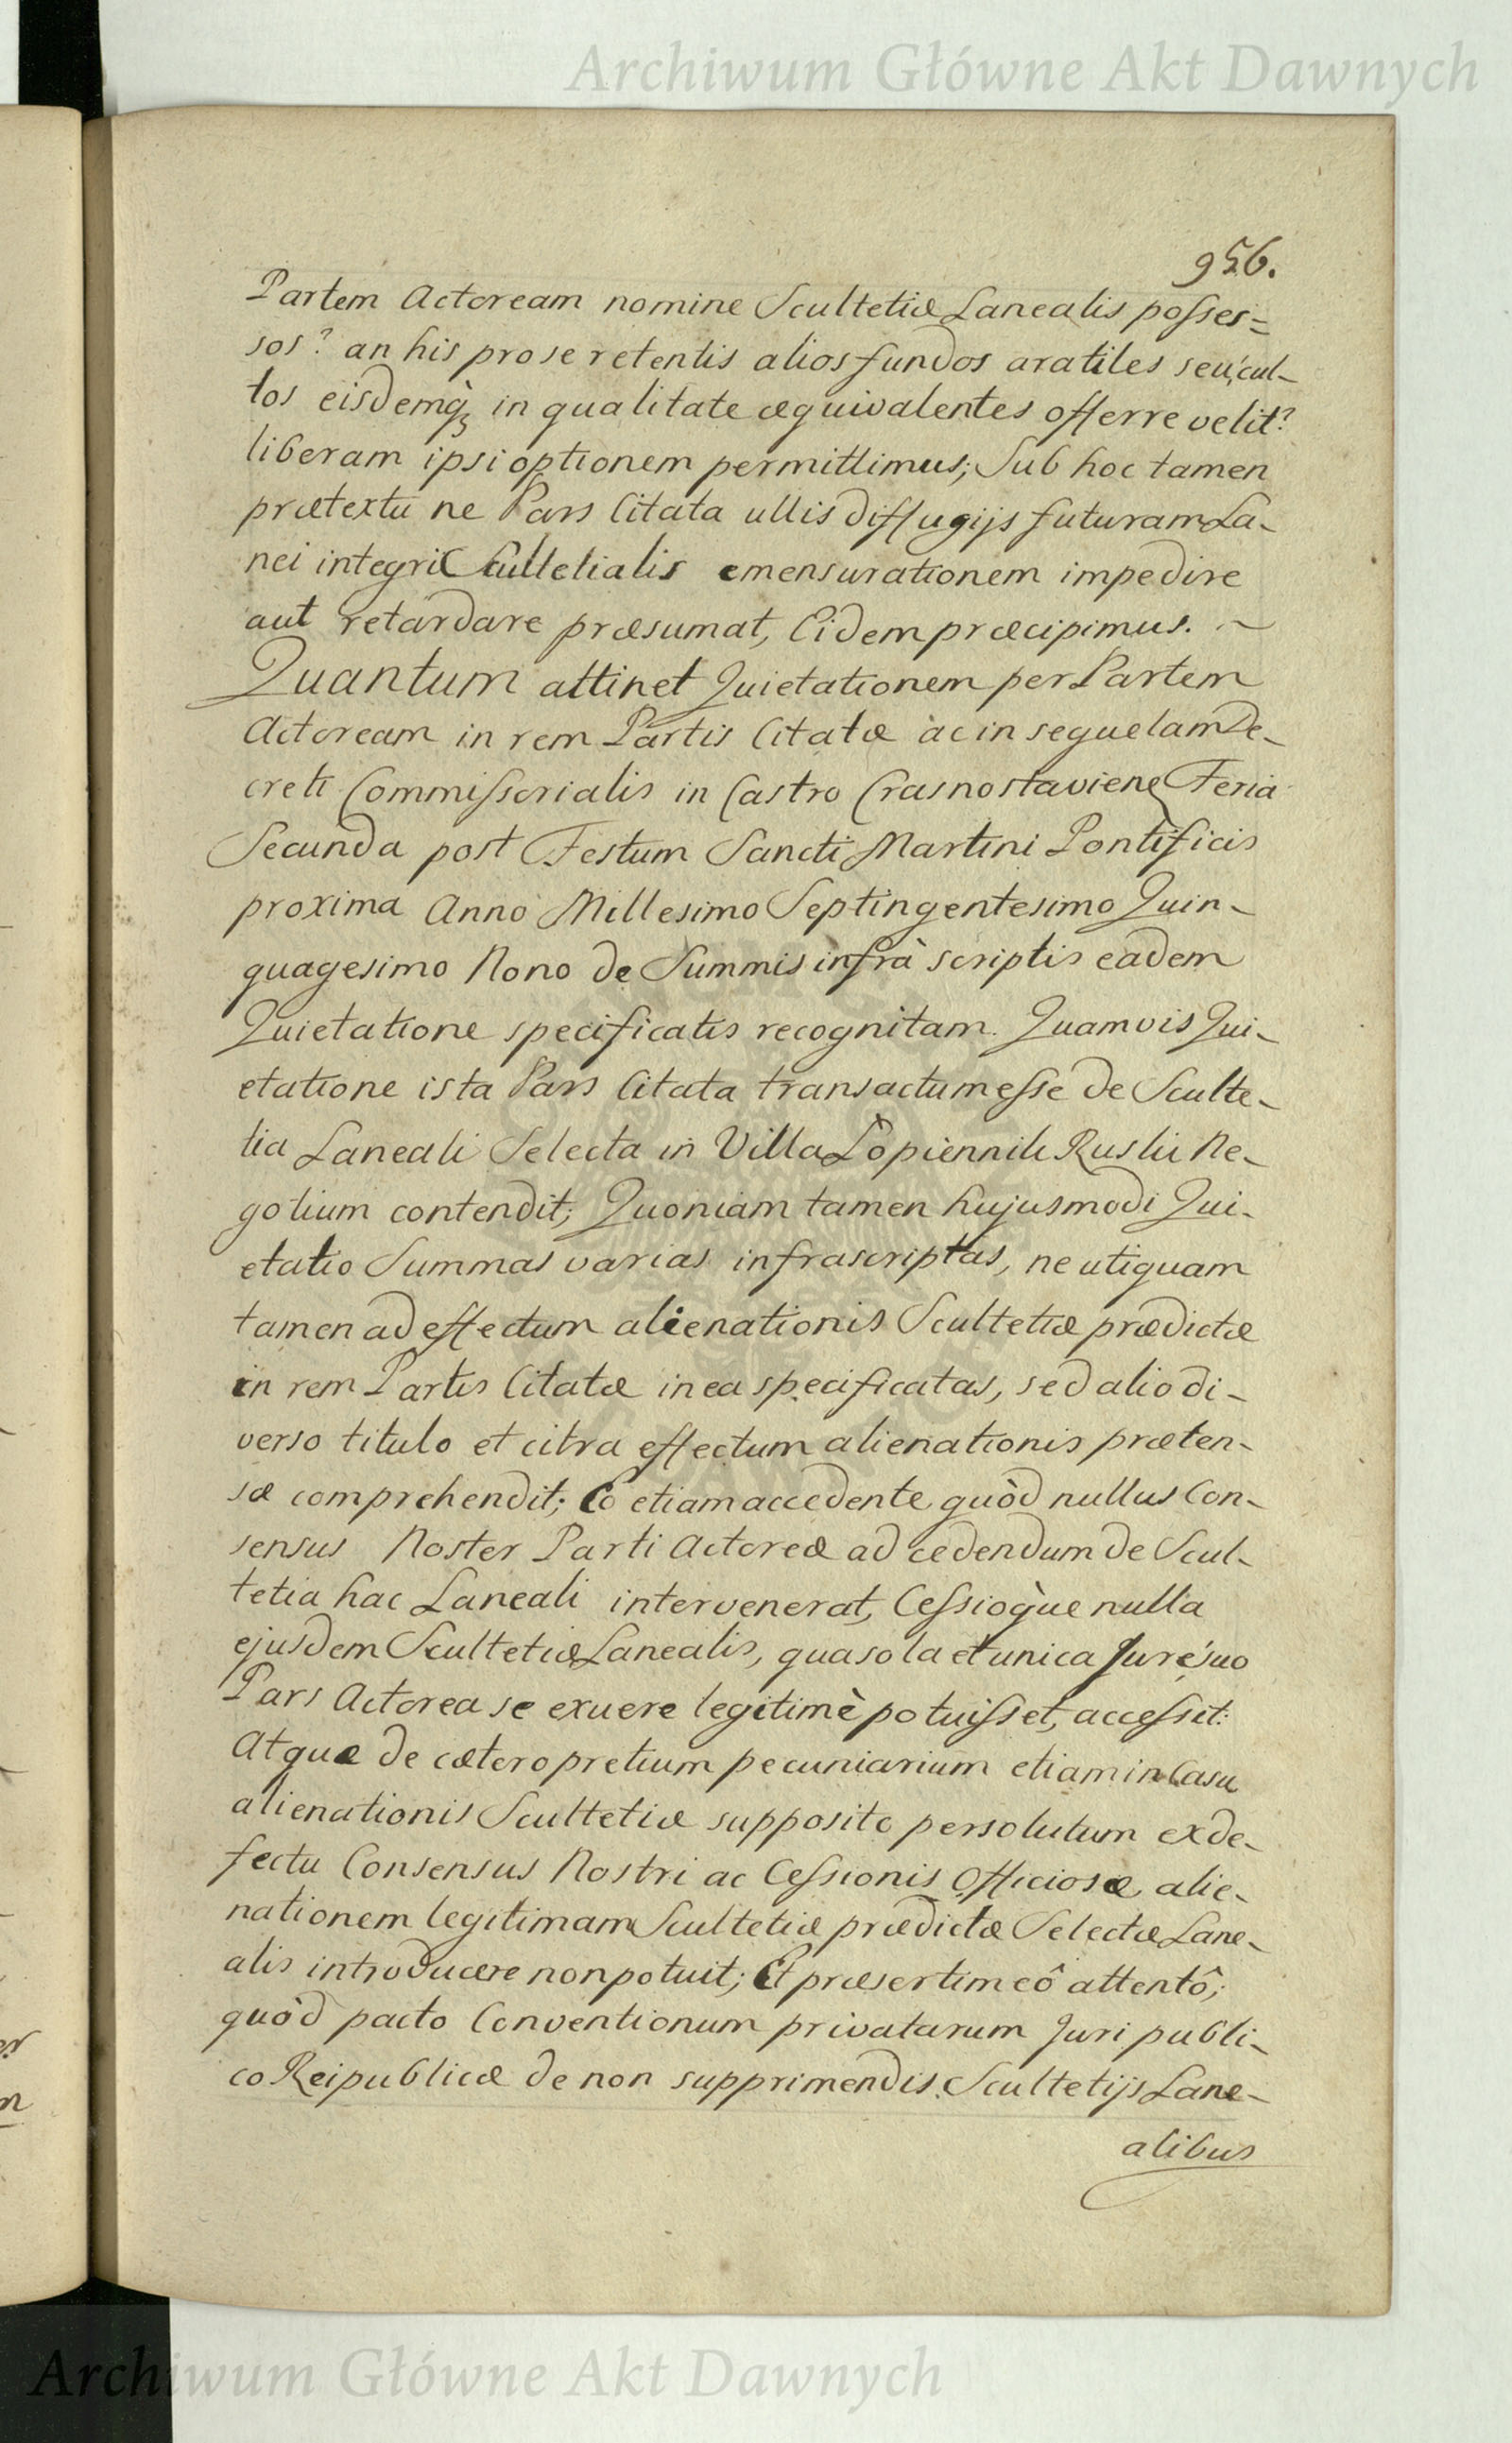 Archiwum Główne Akt Dawnych
956.
Partem Actoream nomine Scultetiæ Lanealis posses=
sos? an his pro se retentis alios fundos aratiles seu cul-
tos eisdemq̀ꝫ in qualitate æquivalentes offerre velit?
liberam ipsi optionem permittimus; Sub hoc tamen
prætextu ne Pars Citata ullis diffugijs futuram La-
nei integri Scultetialis emensurationem impedire
aut retardare præsumat, Eidem præcipimus. -~
Quantum attinet Quietationem per Partem
Actoream in rem Partis Citatæ ac in sequelam De-
creti Commissorialis in Castro Crasnostaviensi Feria
Secunda post Festum Sancti Martini Pontificis
proxima Anno Millesimo Septingentesimo Quin-
quagesimo Nono de Summis infrà scriptis eadem
Quietatione specificatis recognitam. Quamvis Qui-
etatione ista Pars Citata transactum esse de Sculte-
tia Laneali Selecta in Villa Łopiennik Ruski Ne-
gotium contendit; Quoniam tamen hujusmodi Qui-
etatio Summas varias infrascriptas, neutiquam
tamen ad effectum alienationis Scultetiæ prædictæ
in rem Partis Citatæ in ea specificatas, sed alio di-
verso titulo et citra effectum alienationis præten-
sæ comprehendit; Eo etiam accedente quòd nullus Con-
sensus Noster Parti Actoreæ ad cedendum de Scul-
tetia hac Laneali intervenerat, Cessioq̀ue nulla
ejusdem Scultetiæ Lanealis, qua sola et unica Jure suo
Pars Actorea se exuere legitimè potuisset, accessit:
Atque de cætero pretium pecuniarium etiam in Casu
alienationis Scultetiæ supposito persolutum ex de-
fectu Consensus Nostri ac Cessionis Officiosæ alie-
nationem legitimam Scultetiæ prædictæ Selectæ Lane-
alis introducere non potuit; Et præsertim eô attentô;
quòd pacto Conventionum privatarum Juri publi-
co Reipublicæ de non supprimendis Scultetijs Lane-
alibus
Archiwum Główne Akt Dawnych